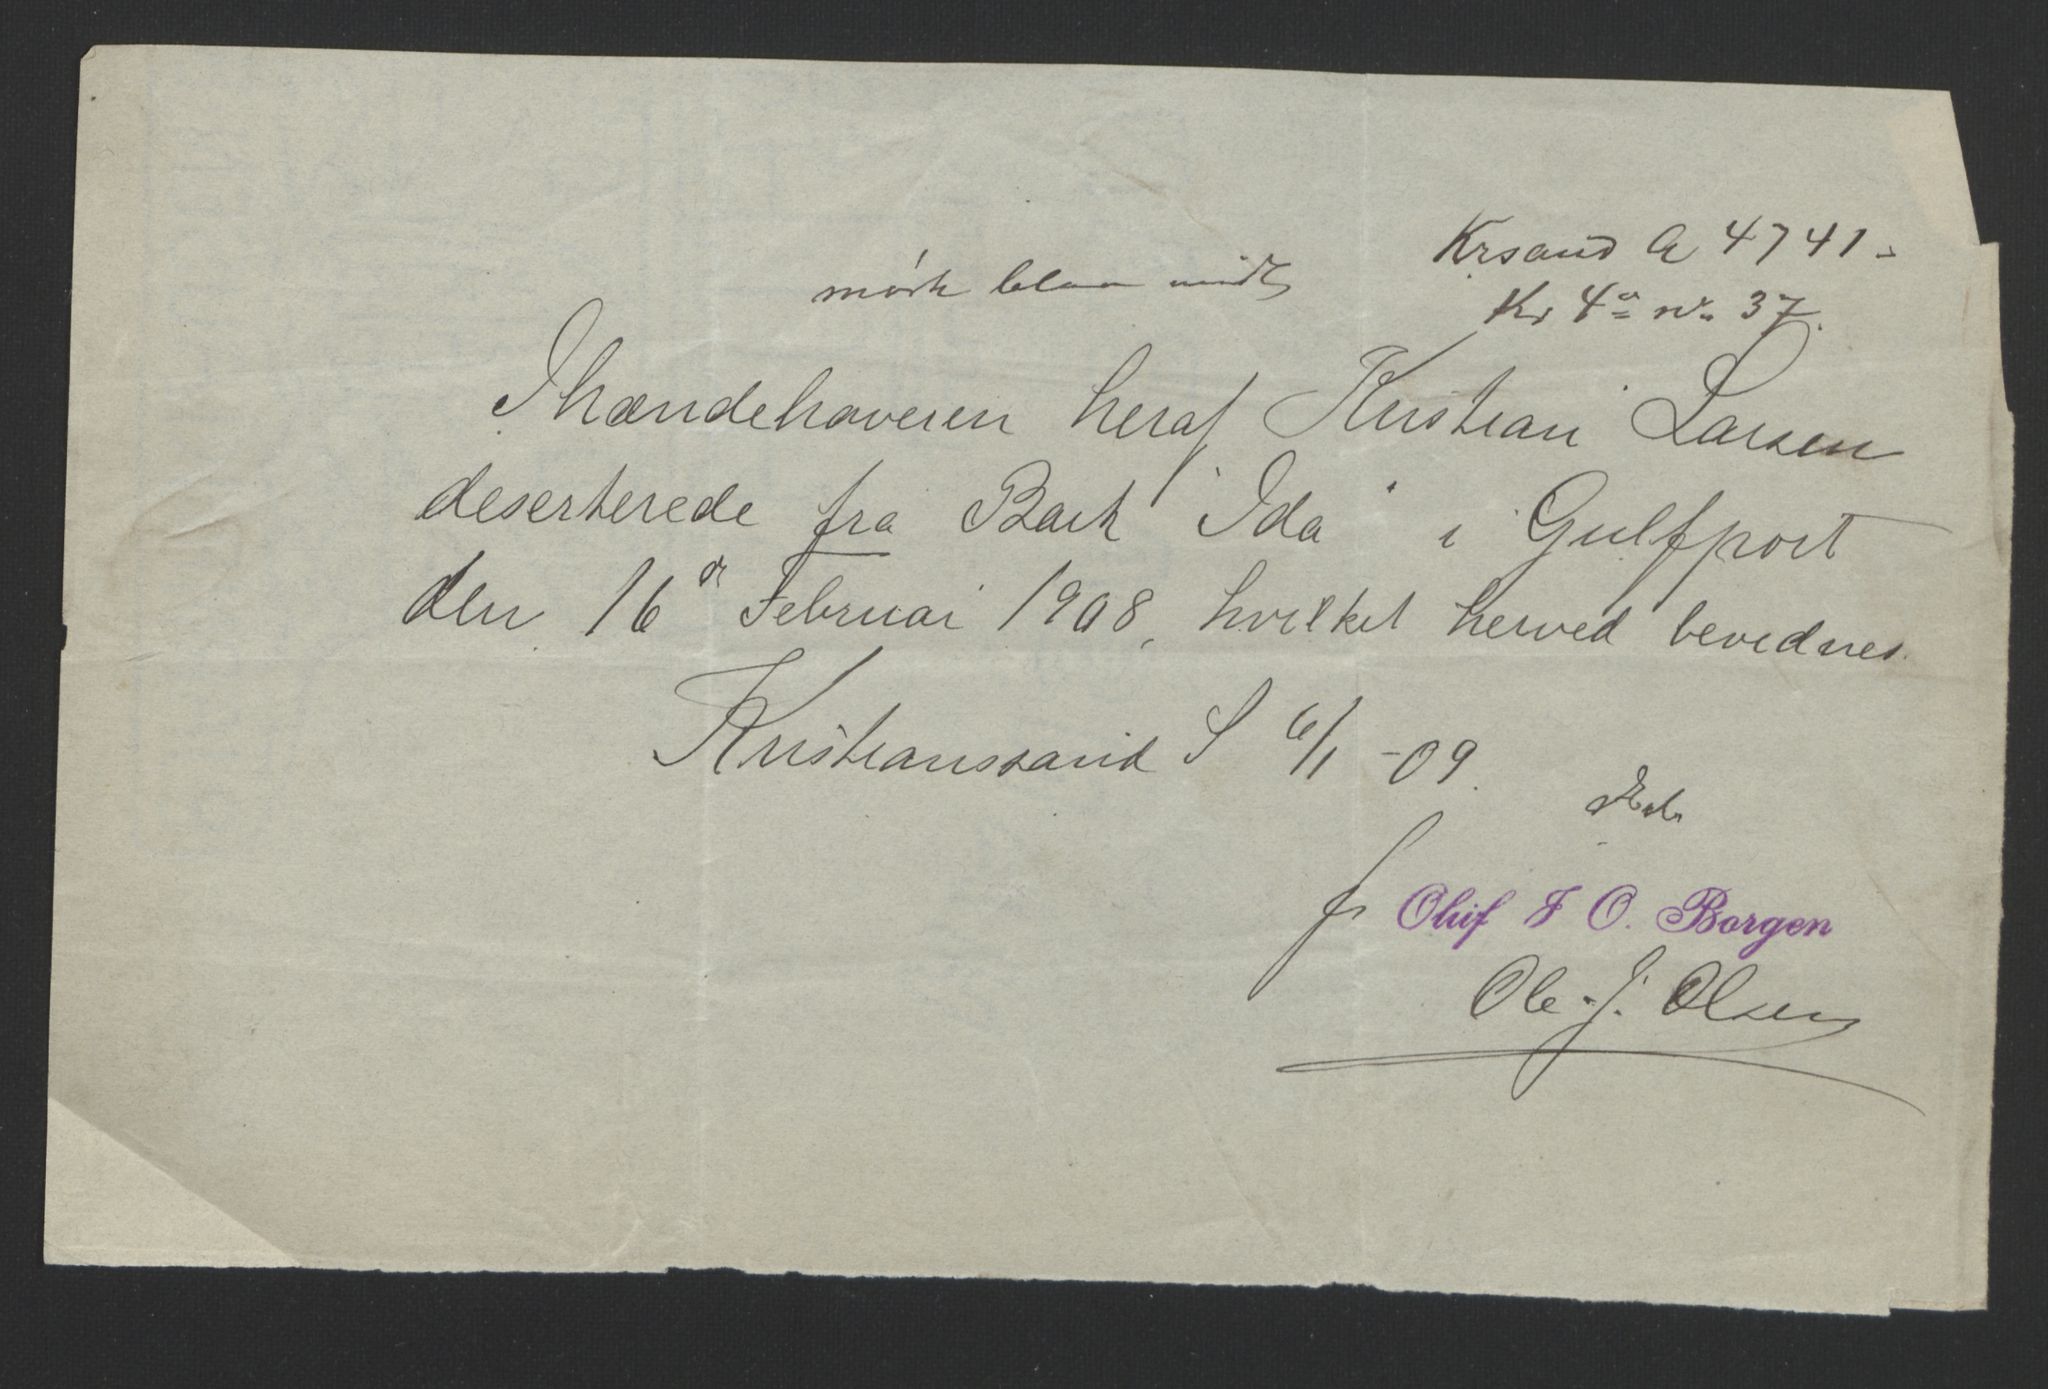 Krsand A 4741
mørk blaa
Kr 4 No 37.
Ihændehaveren heraf Kristian Larsen
deserterede fra Bark "Ida" i Gulfport
den 16de Februar 1908, hvilket herved bevidnes.
Kristianssand S 6/1 -09.
fr Oluf F O. Borgen
Ole J. Olsen